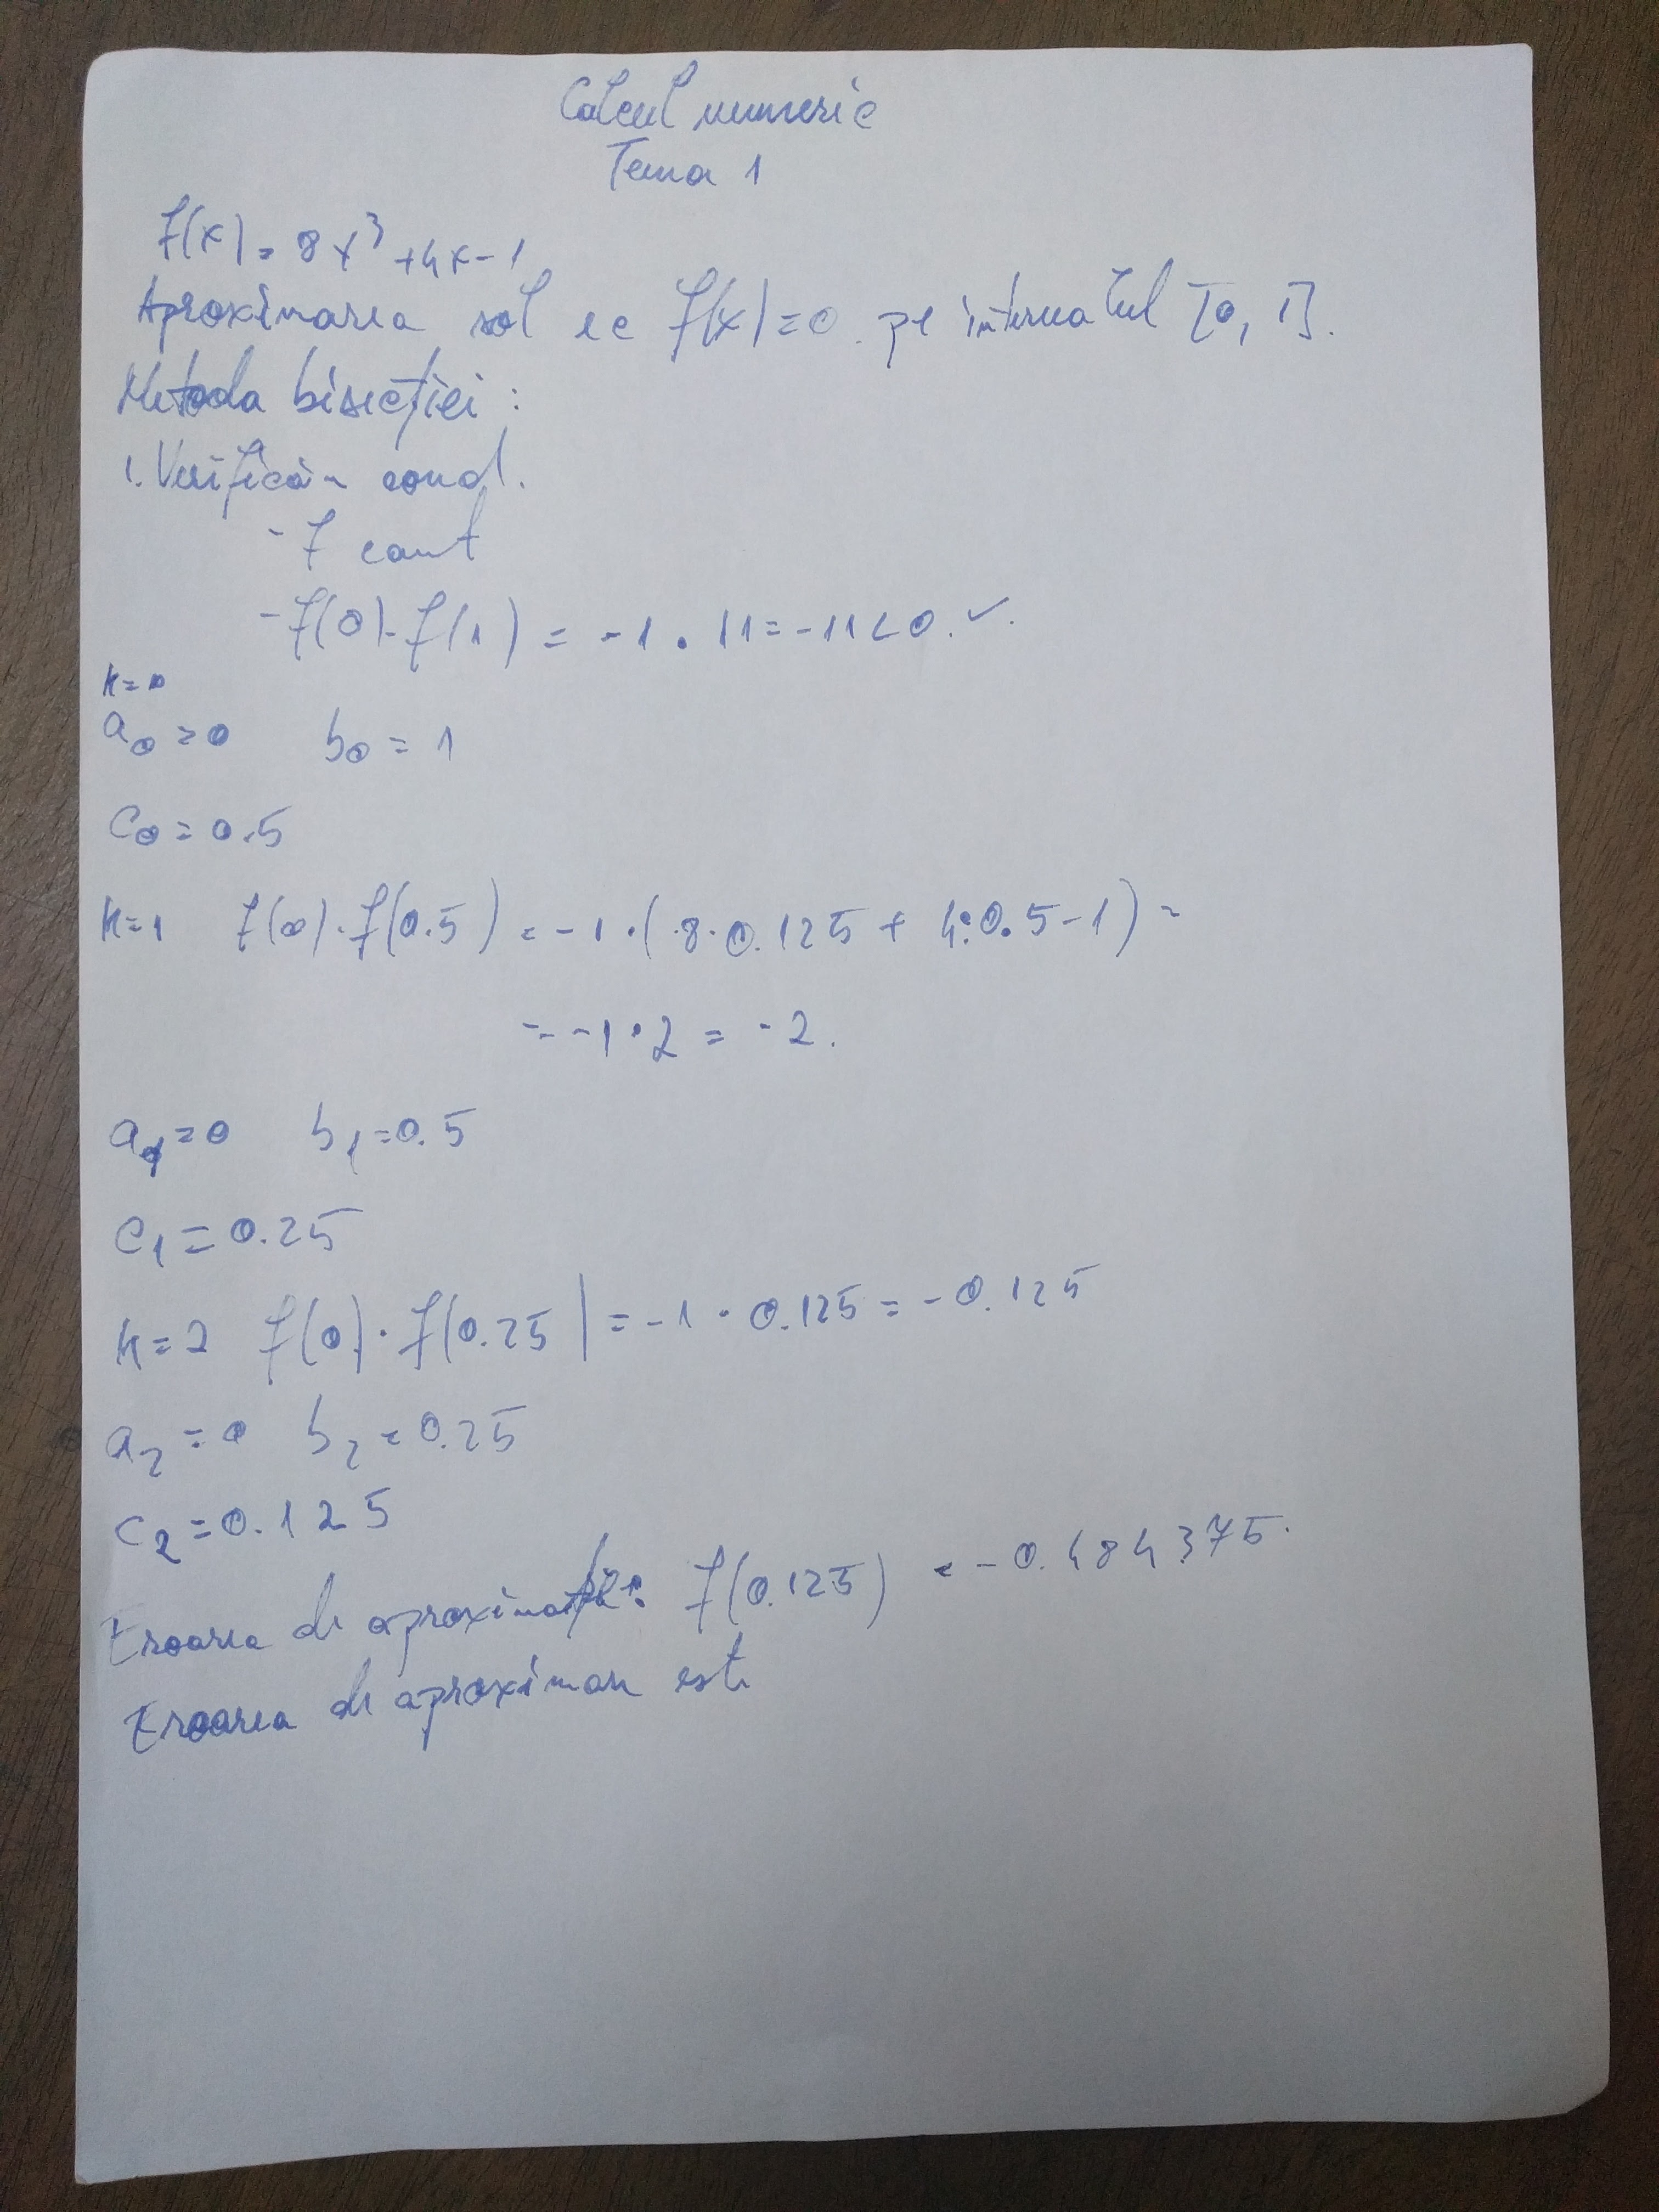 Calcul numeric
Tema 1
f(x) = 8x³ + 4x - 1
Aproximarea sol ec f(x) = 0 pe intervalul [0, 1].
Metoda bisecției :
1. Verificăm cond.
- f cont
- f(0) · f(1) = -1 · 11 = -11 < 0. ✓.
k = 0
a₀ = 0 b₀ = 1
c₀ = 0.5
k = 1 f(0) · f(0.5) = -1 · (8 · 0.125 + 4 · 0.5 - 1) =
= -1 · 2 = -2.
a₁ = 0 b₁ = 0.5
c₁ = 0.25
k = 2 f(0) · f(0.25) = -1 · 0.125 = -0.125
a₂ = 0 b₂ = 0.25
c₂ = 0.125
Eroarea de f(0.125) = -0.484375.
Eroarea de aproximare este